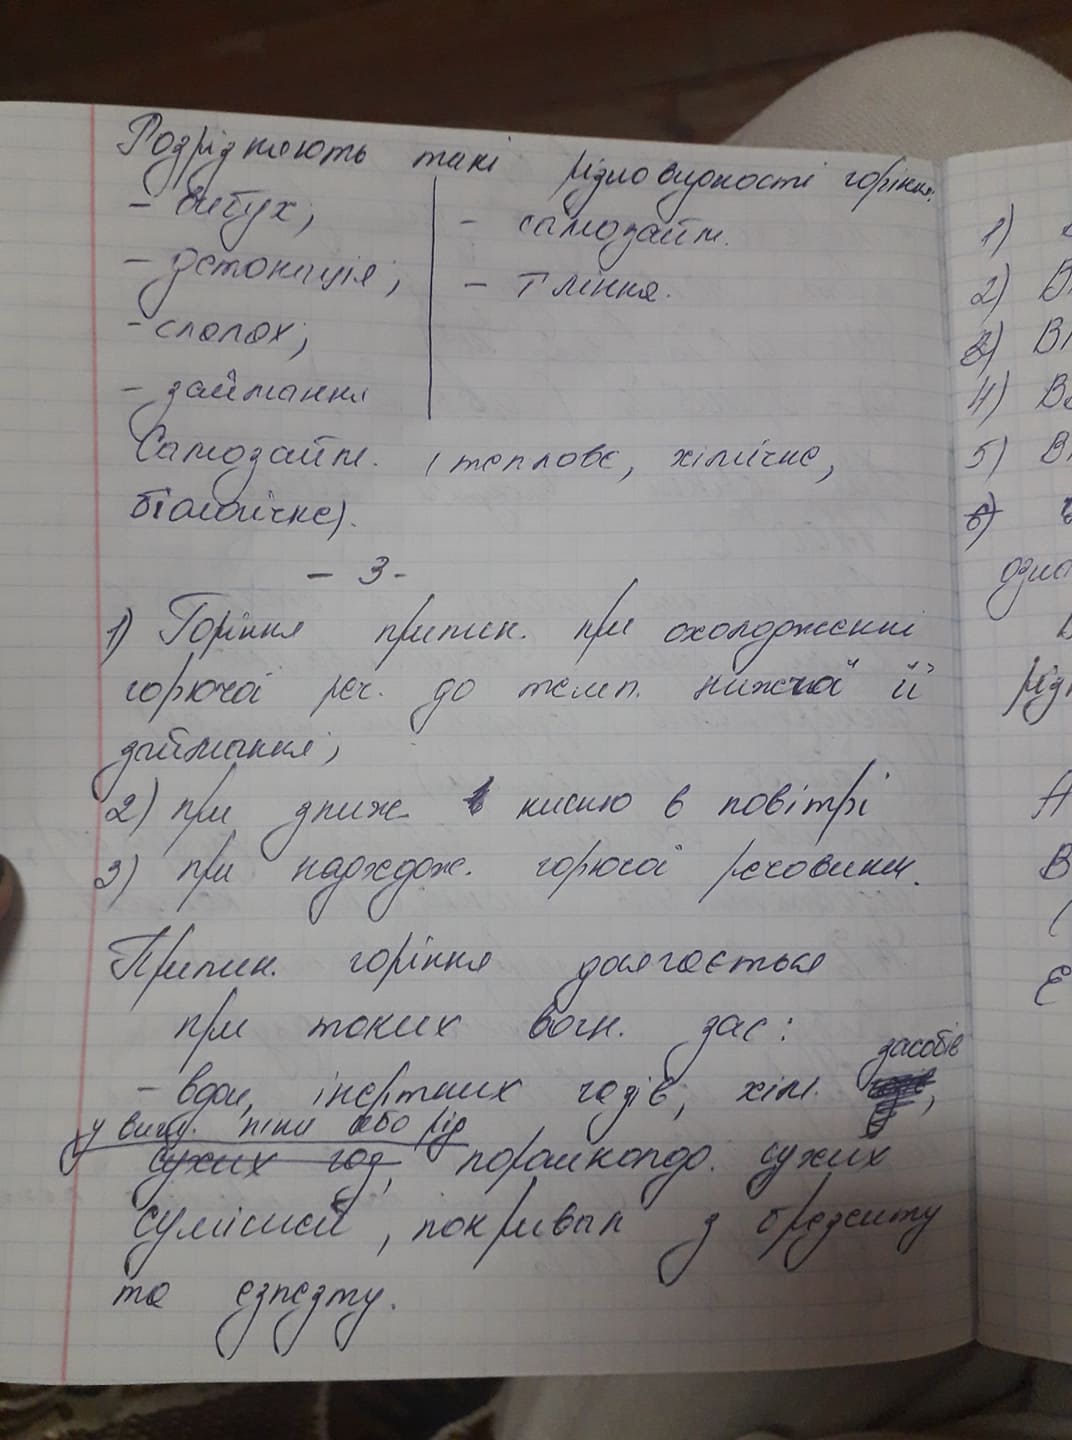 Розрізняють такі різновидності горіння:
- вибух;
- детонація;
- сполох;
- займання
- самозайм.
- тління.
Самозайм. (теплове, хімічне,
біологічне).
- 3 -
1) Горіння припин. при охолодженні
горючої реч. до темп. нижчої її
займання;
2) при зниж. кисню в повітрі
3) при надходж. горючої речовини.
Припин. горіння досягається
при таких вогн. зас:
- води, інертних газів, хім. засобів,
у вигл. піни або рід
сухих газ, порошкопод. сухих
сумішей, покривал з брезенту
та
1)
2) В
3) В
4) В
5) В
6)
озна
різн
А
В
Е